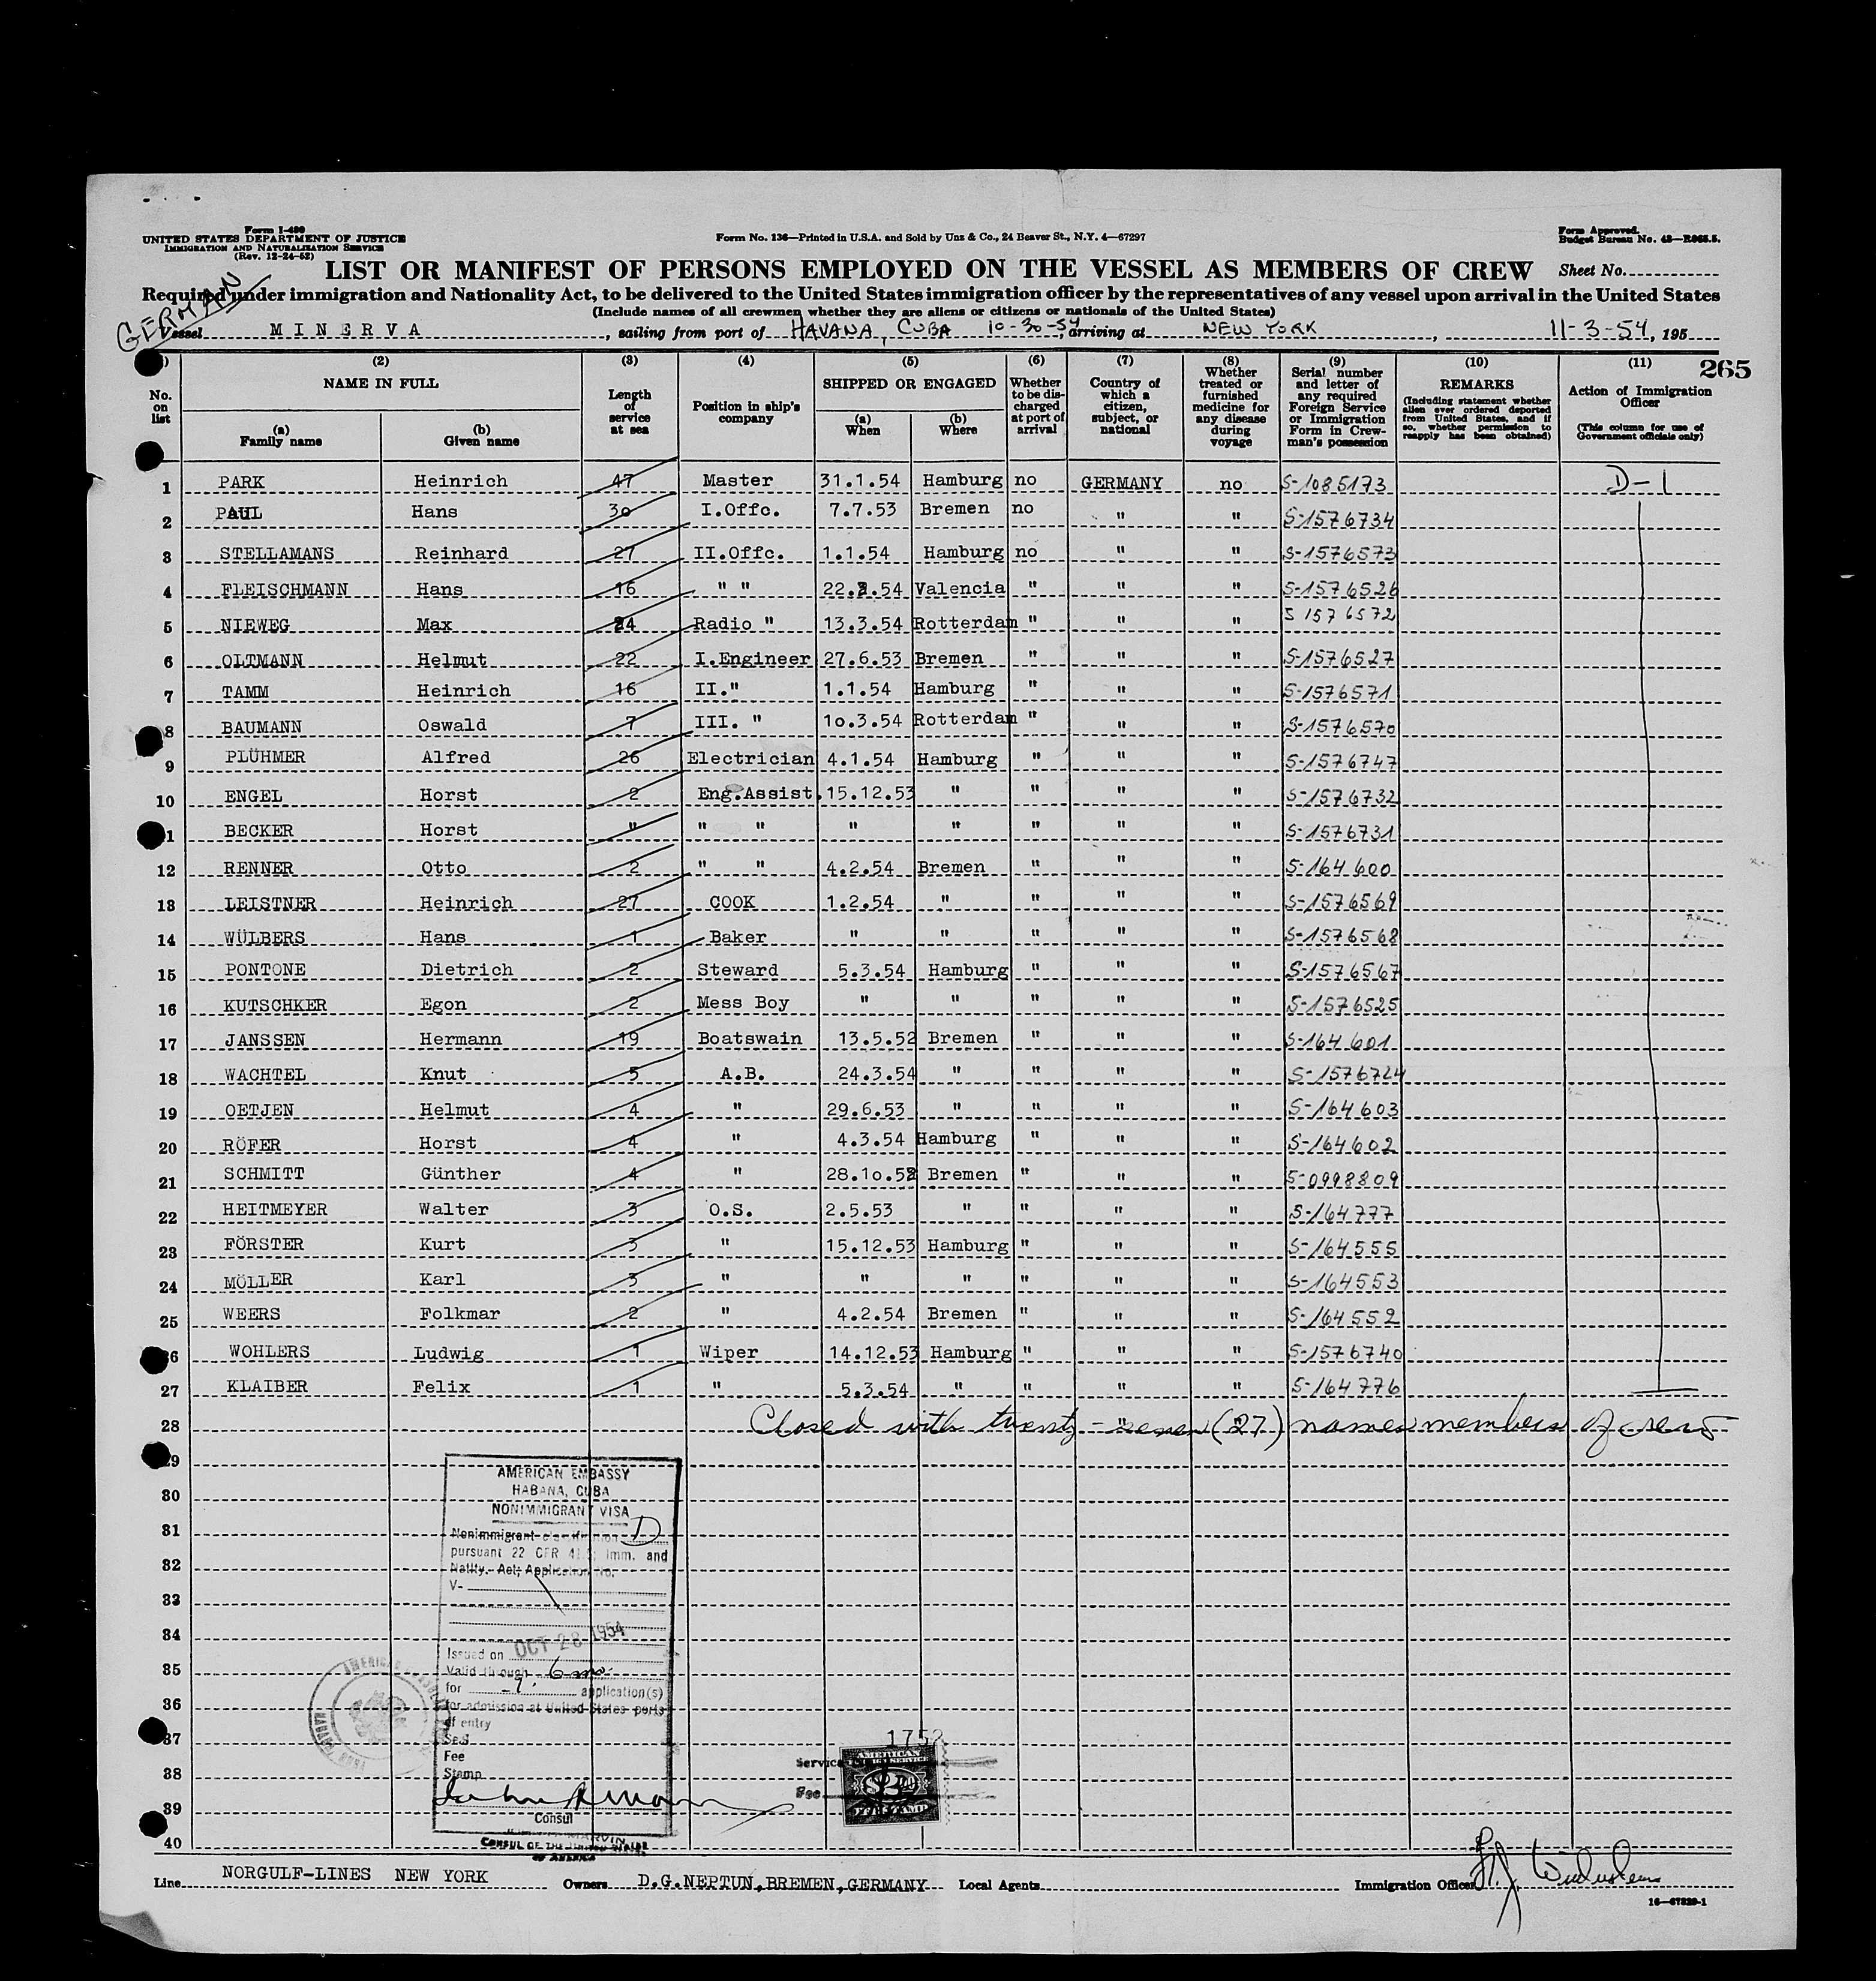 Form I-480
UNITED STATES DEPARTMENT OF JUSTICE
IMMIGRATION AND NATURALIZATION SERVICE
(Rev. 12-24-52)
Form No. 136—Printed in U.S.A. and Sold by Unz & Co., 24 Beaver St., N.Y. 4—67297
Form Approved.
Budget Bureau No. 43—R065.5.
LIST OR MANIFEST OF PERSONS EMPLOYED ON THE VESSEL AS MEMBERS OF CREW Sheet No.
GERMAN
Required under immigration and Nationality Act, to be delivered to the United States immigration officer by the representatives of any vessel upon arrival in the United States
(Include names of all crewmen whether they are aliens or citizens or nationals of the United States)
Vessel MINERVA, sailing from port of HAVANA, CUBA 10-30-54, arriving at NEW YORK, 11-3-54, 195
265
(2) (3) (4) (5) (6) (7) (8) (9) (10) (11)
No. on list
NAME IN FULL
(a) Family name
(b) Given name
Length of service at sea
Position in ship's company
SHIPPED OR ENGAGED
(a) When
(b) Where
Whether to be discharged at port of arrival
Country of which a citizen, subject, or national
Whether treated or furnished medicine for any disease during voyage
Serial number and letter of any required Foreign Service or Immigration Form in Crewman's possession
REMARKS
(Including statement whether alien ever ordered deported from United States, and if so, whether permission to reapply has been obtained)
Action of Immigration Officer
(This column for use of Government officials only)
1 PARK Heinrich 47 Master 31.1.54 Hamburg no GERMANY no S-1085173 D-1
2 PAUL Hans 30 I.Offc. 7.7.53 Bremen no " " S-1576734
3 STELLAMANS Reinhard 27 II.Offc. 1.1.54 Hamburg no " " S-1576573
4 FLEISCHMANN Hans 16 " " 22.3.54 Valencia " " " S-1576526
5 NIEWEG Max 24 Radio " 13.3.54 Rotterdam " " " S 1576572
6 OLTMANN Helmut 22 I.Engineer 27.6.53 Bremen " " " S-1576527
7 TAMM Heinrich 16 II." 1.1.54 Hamburg " " " S-1576571
8 BAUMANN Oswald 7 III. " 10.3.54 Rotterdam " " " S-1576570
9 PLÜHMER Alfred 26 Electrician 4.1.54 Hamburg " " " S-1576747
10 ENGEL Horst 2 Eng.Assist. 15.12.53 " " " " S-1576732
11 BECKER Horst " " " " " " " " S-1576731
12 RENNER Otto 2 " " 4.2.54 Bremen " " " S-164600
13 LEISTNER Heinrich 27 COOK 1.2.54 " " " " S-1576569
14 WÜLBERS Hans 1 Baker " " " " " S-1576568
15 PONTONE Dietrich 2 Steward 5.3.54 Hamburg " " " S-1576567
16 KUTSCHKER Egon 2 Mess Boy " " " " " S-1576525
17 JANSSEN Hermann 19 Boatswain 13.5.52 Bremen " " " S-164601
18 WACHTEL Knut 5 A.B. 24.3.54 " " " " S-1576724
19 OETJEN Helmut 4 " 29.6.53 " " " " S-164603
20 RÖFER Horst 4 " 4.3.54 Hamburg " " " S-164602
21 SCHMITT Günther 4 " 28.10.52 Bremen " " " S-0998809
22 HEITMEYER Walter 3 O.S. 2.5.53 " " " " S-164777
23 FÖRSTER Kurt 3 " 15.12.53 Hamburg " " " S-164555
24 MÖLLER Karl 3 " " " " " " S-164553
25 WEERS Folkmar 2 " 4.2.54 Bremen " " " S-164552
26 WOHLERS Ludwig 1 Wiper 14.12.53 Hamburg " " " S-1576740
27 KLAIBER Felix 1 " 5.3.54 " " " " S-164776
28 Closed with twenty-seven (27) names members of crew
29
30
31
32
33
34
35
36
37
38
39
40
AMERICAN EMBASSY
HABANA, CUBA
NONIMMIGRANT VISA
Nonimmigrant classification D
pursuant 22 CFR 41.5; Imm. and
Natlty. Act; Application No.
V-
Issued on OCT 28 1954
Valid through 6 mo.
for 1 application(s)
for admission at United States ports
of entry
Seal
Fee
Stamp
Consul
CONSUL OF THE UNITED STATES
OF AMERICA
1752
Service
Fee
AMERICAN
FEE STAMP
Line NORGULF-LINES NEW YORK Owners D.G.NEPTUN, BREMEN, GERMANY Local Agents Immigration Officer
16—67829-1